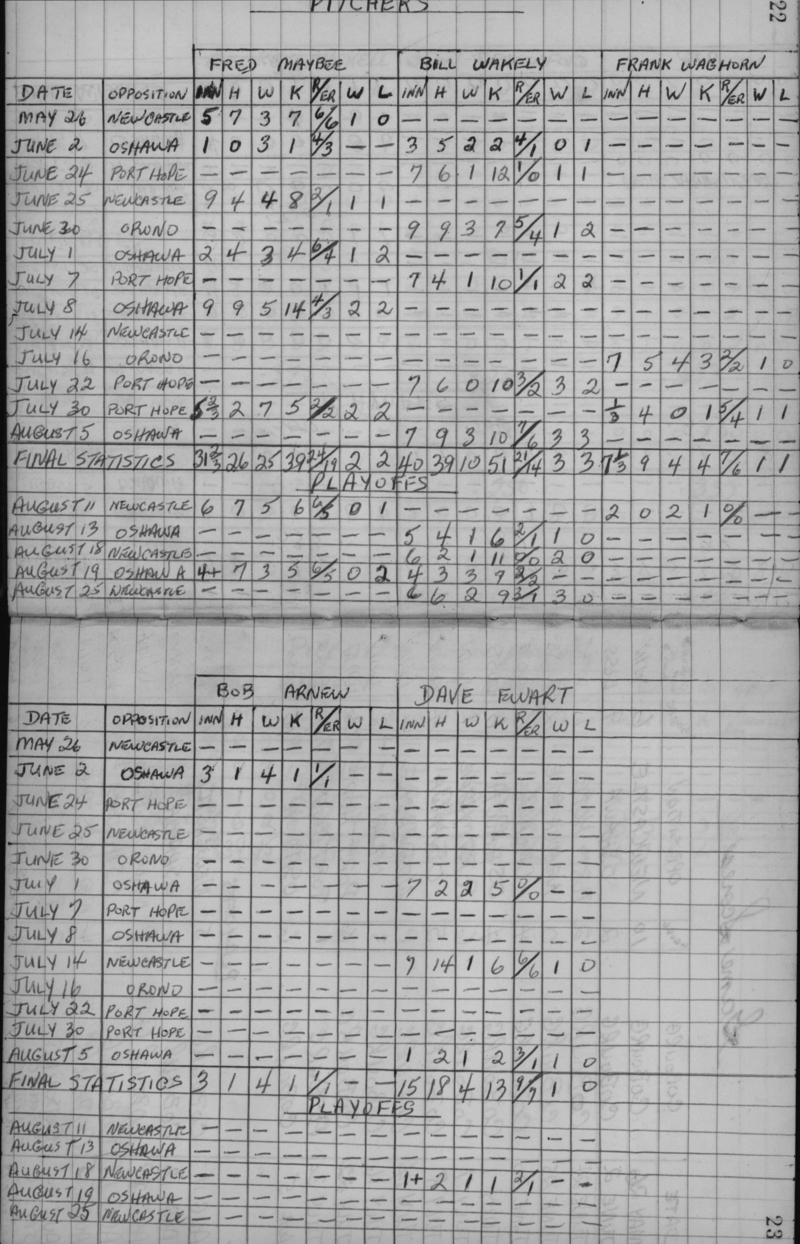 PITCHERS
22
FRED MAYBEE BILL WAKELY FRANK WAGHORN
DATE OPPOSITION INN H W K R/ER W L INN H W K R/ER W L INN H W K R/ER W L
MAY 26 NEWCASTLE 5 7 3 7 6/6 1 0 — — — — — — — — — — — — — —
JUNE 2 OSHAWA 1 0 3 1 4/3 — — 3 5 2 2 4/1 0 1 — — — — — — —
JUNE 24 PORT HOPE — — — — — — — 7 6 1 12 1/0 1 1 — — — — — — —
JUNE 25 NEWCASTLE 9 4 4 8 2/1 1 1 — — — — — — — — — — — — — —
JUNE 30 ORONO — — — — — — — 9 9 3 7 5/4 1 2 — — — — — — —
JULY 1 OSHAWA 2 4 3 4 6/4 1 2 — — — — — — — — — — — — — —
JULY 7 PORT HOPE — — — — — — — 7 4 1 10 1/1 2 2 — — — — — — —
JULY 8 OSHAWA 9 9 5 14 4/3 2 2 — — — — — — — — — — — — — —
JULY 14 NEWCASTLE — — — — — — — — — — — — — — — — — — — — —
JULY 16 ORONO — — — — — — — — — — — — — — 7 5 4 3 2/2 1 0
JULY 22 PORT HOPE — — — — — — — 7 6 0 10 3/2 3 2 — — — — — — —
JULY 30 PORT HOPE 5 2/3 2 7 5 2/2 2 2 — — — — — — — 1/3 4 0 1 5/4 1 1
AUGUST 5 OSHAWA — — — — — — — 7 9 3 10 7/6 3 3 — — — — — — —
FINAL STATISTICS 31 2/3 26 25 39 24/19 2 2 40 39 10 51 21/14 3 3 7 1/3 9 4 4 7/6 1 1
PLAYOFFS
AUGUST 11 NEWCASTLE 6 7 5 6 6/5 0 1 — — — — — — — 2 0 2 1 0/0 — —
AUGUST 13 OSHAWA — — — — — — — 5 4 1 6 2/1 1 0 — — — — — — —
AUGUST 18 NEWCASTLE — — — — — — — 6 2 1 11 0/0 2 0 — — — — — — —
AUGUST 19 OSHAWA 4+ 7 3 5 6/5 0 2 4 3 3 7 2/2 — — — — — — — — —
AUGUST 25 NEWCASTLE — — — — — — — 6 6 2 9 3/1 3 0 — — — — — — —
BOB ARNEW DAVE EWART
DATE OPPOSITION INN H W K R/ER W L INN H W K R/ER W L
MAY 26 NEWCASTLE — — — — — — — — — — — — — —
JUNE 2 OSHAWA 3 1 4 1 1/1 — — — — — — — — —
JUNE 24 PORT HOPE — — — — — — — — — — — — — —
JUNE 25 NEWCASTLE — — — — — — — — — — — — — —
JUNE 30 ORONO — — — — — — — — — — — — — —
JULY 1 OSHAWA — — — — — — — 7 2 2 5 0/0 — —
JULY 7 PORT HOPE — — — — — — — — — — — — — —
JULY 8 OSHAWA — — — — — — — — — — — — — —
JULY 14 NEWCASTLE — — — — — — — 7 14 1 6 6/6 1 0
JULY 16 ORONO — — — — — — — — — — — — — —
JULY 22 PORT HOPE — — — — — — — — — — — — — —
JULY 30 PORT HOPE — — — — — — — — — — — — — —
AUGUST 5 OSHAWA — — — — — — — 1 2 1 2 3/1 1 0
FINAL STATISTICS 3 1 4 1 1/1 — — 15 18 4 13 9/7 1 0
PLAYOFFS
AUGUST 11 NEWCASTLE — — — — — — — — — — — — — —
AUGUST 13 OSHAWA — — — — — — — — — — — — — —
AUGUST 18 NEWCASTLE — — — — — — — 1+ 2 1 1 2/1 — —
AUGUST 19 OSHAWA — — — — — — — — — — — — — —
AUGUST 25 NEWCASTLE — — — — — — — — — — — — — —
23